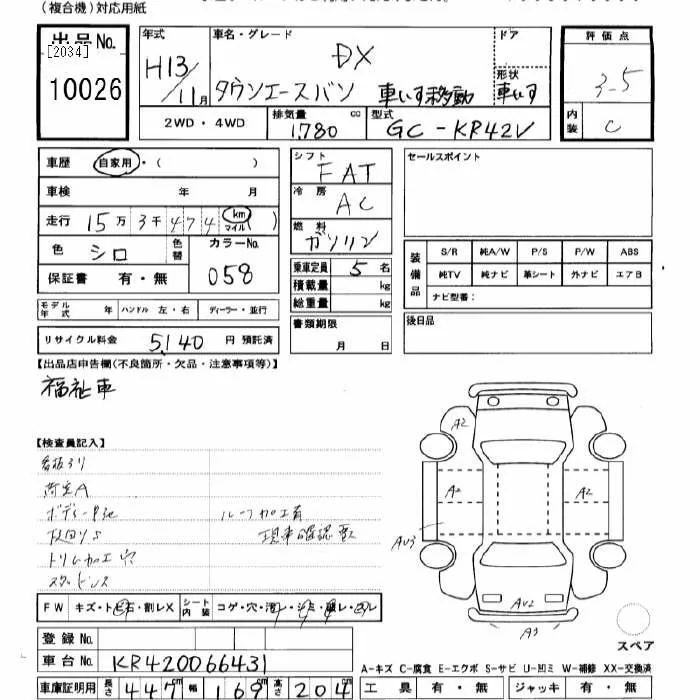 (複合機)対応用紙
出品No.
[2034]
10026
年式
H13/11月
車名・グレード
DX
タウンエースバン 車いす移動
ドア
形状
車いす
評価点
3.5
内装
C
2WD・4WD
排気量
1,780 cc
型式
GC-KR42V
車歴 自家用・( )
車検 年 月
走行 15万3千474 km マイル ( )
色 シロ
色替
カラーNo.
058
保証書 有・無
モデル年式 年 ハンドル 左・右 ディーラー・並行
リサイクル料金 5,140 円 預託済
シフト
FAT
冷房
AC
燃料
ガソリン
乗車定員 5 名
積載量 kg
総重量 kg
書類期限
月 日
セールスポイント
装備品
S/R 純A/W P/S P/W ABS
純TV 純ナビ 革シート 外ナビ エアB
ナビ型番:
後日品
【出品店申告欄(不良箇所・欠品・注意事項等)】
福祉車
【検査員記入】
ルーフ加工有
現車確認
トリム加工 穴
A2
A2
A2
AU3
AU2
A3
スペア
FW キズ・トビ石・割レX
シート内装
コゲ・穴・
登録No.
車台No. KR420066431
車庫証明用 長さ 447cm 幅 169cm 高さ 204cm
A-キズ C-腐食 E-エクボ S-サビ U-凹ミ W-補修 XX-交換済
工具 有・無 ジャッキ 有・無